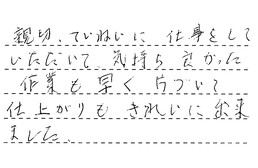 親切、ていねいに 仕事をして
いただいて 気持ち良かった
作業も早く片づいて
仕上がりも きれいに出来
ました。